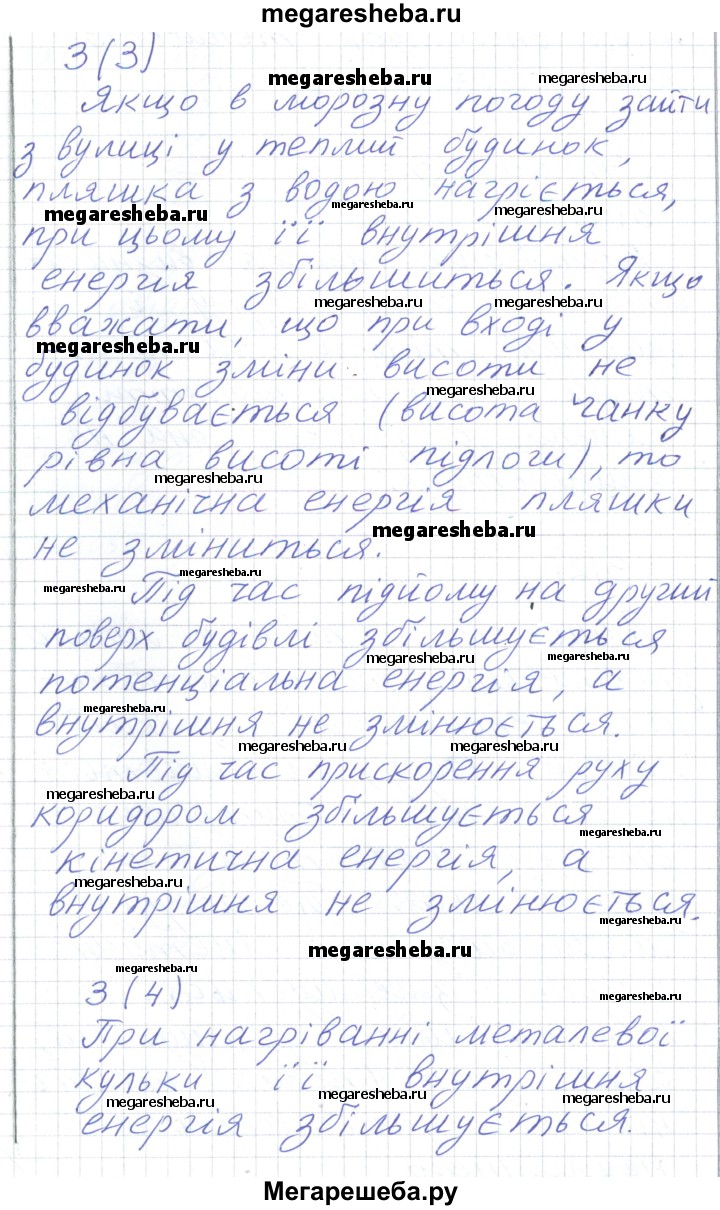 megaresheba.ru
3 (3)
megaresheba.ru megaresheba.ru
Якщо в морозну погоду зайти
з вулиці у теплий будинок,
пляшка з водою нагріється,
megaresheba.ru megaresheba.ru megaresheba.ru
при цьому її внутрішня
енергія збільшиться. Якщо
megaresheba.ru megaresheba.ru
вважати, що при вході у
megaresheba.ru
будинок зміни висоти не
megaresheba.ru
відбувається (висота ганку
рівна висоті підлоги), то
megaresheba.ru megaresheba.ru
механічна енергія пляшки
megaresheba.ru
не зміниться.
megaresheba.ru megaresheba.ru
Під час підйому на другий
поверх будівлі збільшується
megaresheba.ru megaresheba.ru
потенціальна енергія, а
megaresheba.ru
внутрішня не змінюється.
megaresheba.ru megaresheba.ru
Під час прискорення руху
megaresheba.ru
коридором збільшується
megaresheba.ru
кінетична енергія, а
megaresheba.ru megaresheba.ru
внутрішня не змінюється.
megaresheba.ru
megaresheba.ru
megaresheba.ru
3 (4)
megaresheba.ru
При нагріванні металевої
кульки її внутрішня
megaresheba.ru megaresheba.ru megaresheba.ru
енергія збільшується.
Мегарешеба.ру